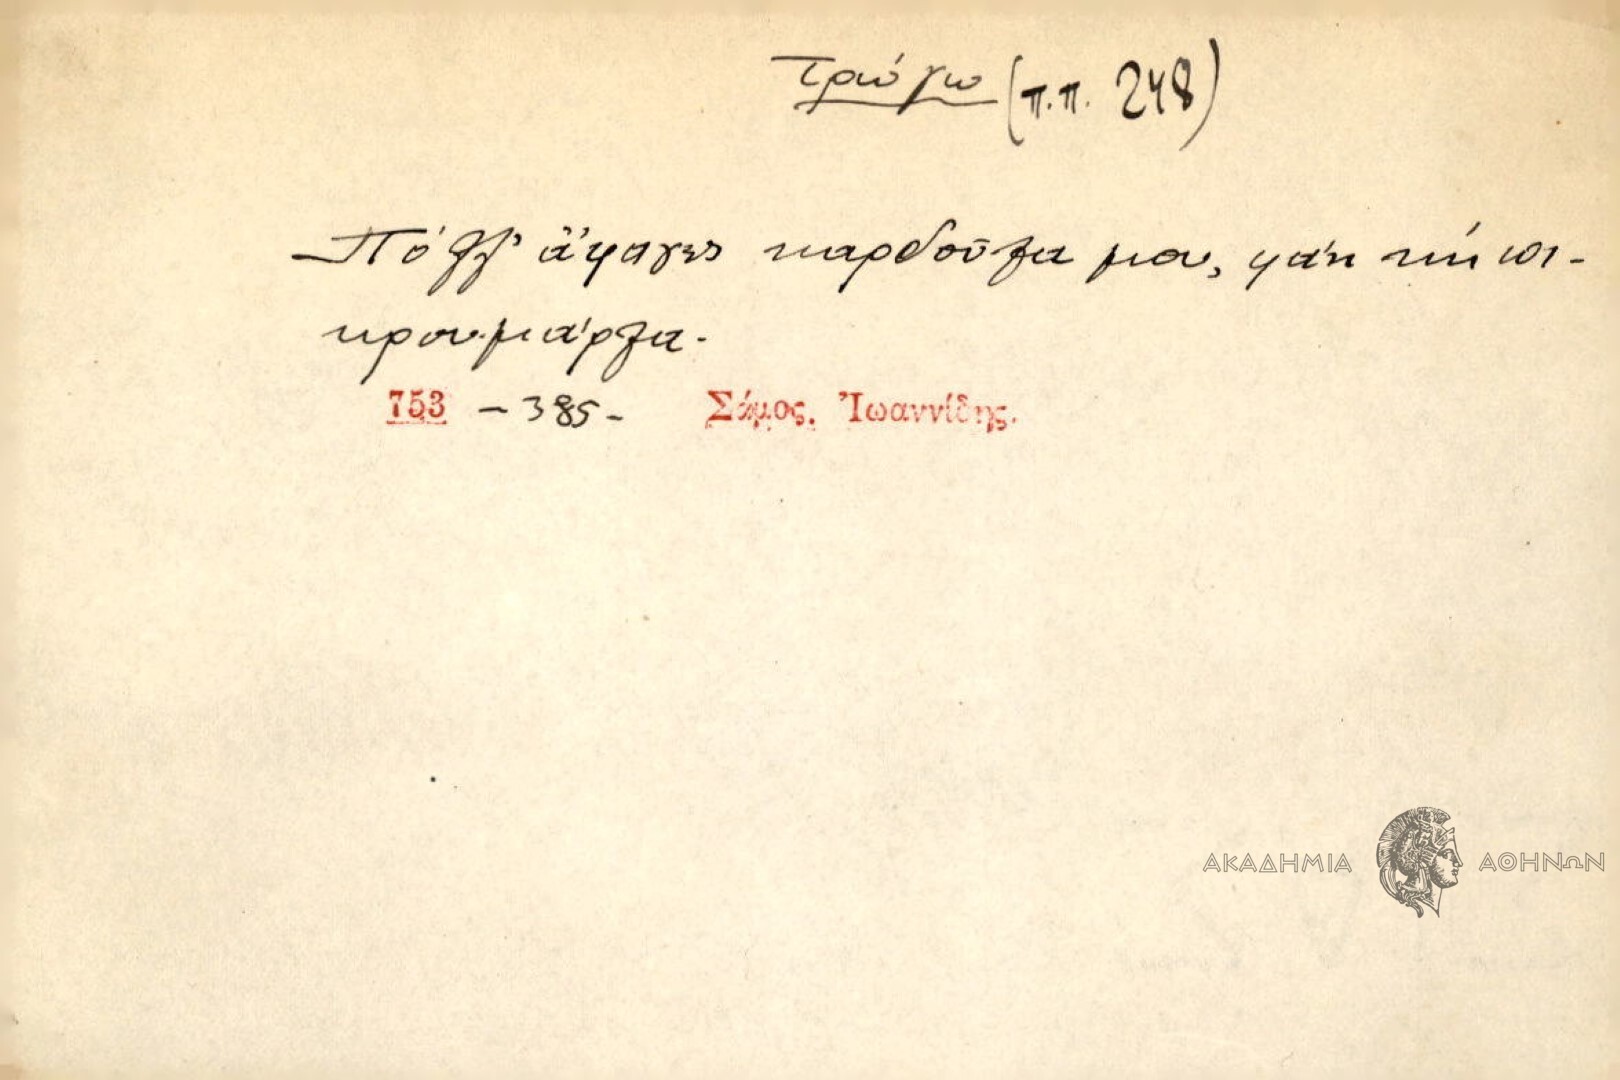 Τρώγω (π.π. 248)
Πόλλ' ἄφαγες καρδοῦλα μου, φάε τσή πι-
κρουμάρλα.
753 - 385 - Σάμος. Ἰωαννίδης.
ΑΚΑΔΗΜΙΑ ΑΘΗΝΩΝ